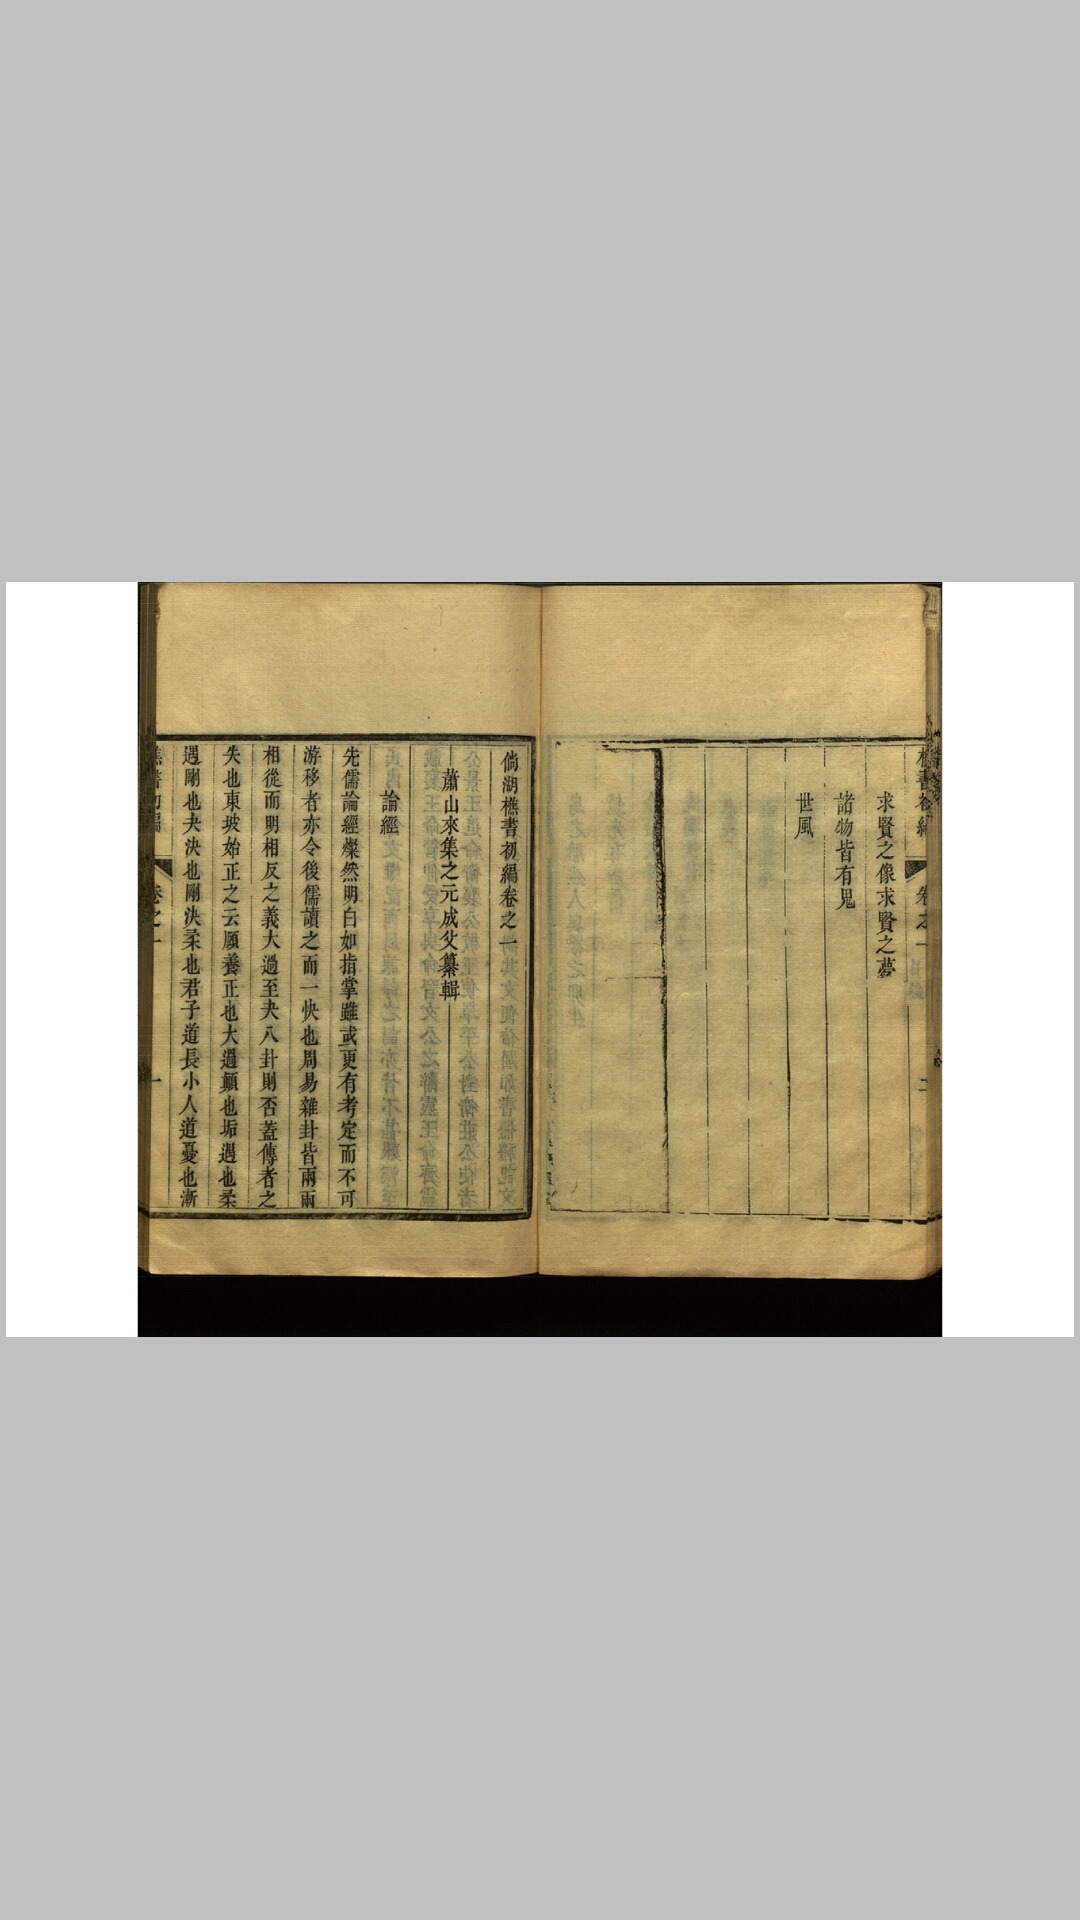 樵書初編
卷之一
二
求賢之像求賢之夢
諸物皆有鬼
世風
倘湖樵書初編卷之一
蕭山來集之元成父纂輯
論經
先儒論經燦然明白如指掌雖或更有考定而不可
游移者亦令後儒讀之而一快也周易雜卦皆兩兩
相從而明相反之義大過至夬八卦則否蓋傳者之
失也東坡始正之云頤養正也大過顛也垢遇也柔
遇剛也夬決也剛決柔也君子道長小人道憂也漸
樵書初編
卷之一
一